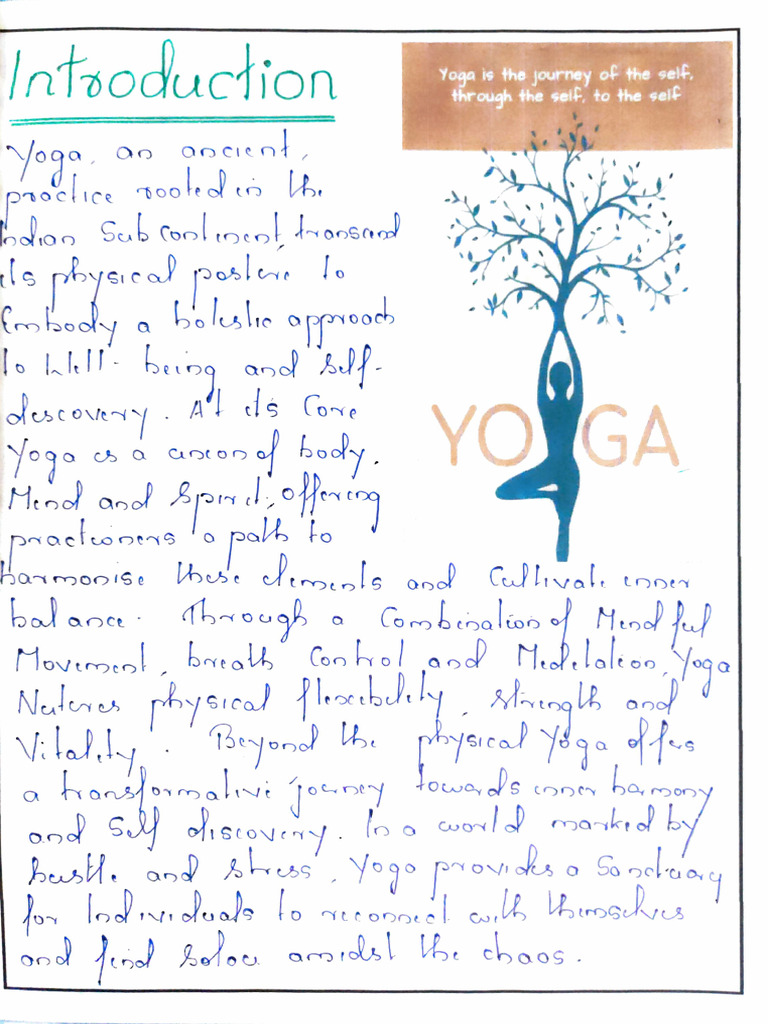 Introduction
Yoga is the journey of the self,
through the self, to the self
Yoga, an ancient,
practice rooted in the
Indian Sub continent, transcend
its physical posture to
Embody a holistic approach
to Well-being and self-
discovery. At its Core
Yoga is a union of body,
Mind and Spirit, offering
practioners a path to
YOGA
harmonise these elements and Cultivate inner
balance. Through a Combination of Mindful
Movement, breath Control and Meditation, Yoga
Nutures physical flexibility, strength and
Vitality. Beyond the physical Yoga offers
a transformative journey towards inner harmony
and Self discovery. In a world marked by
hustle and stress, Yoga provides a Sanctuary
for Individuals to reconnect with themselves
and find solace amidst the chaos.